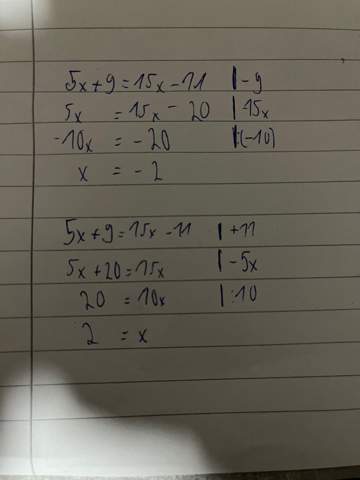 5x + 9 = 15x - 11 | - 9
5x = 15x - 20 | 15x
-10x = - 20 | (-10)
x = - 2
5x + 9 = 15x - 11 | + 11
5x + 20 = 15x | - 5x
20 = 10x | :10
2 = x